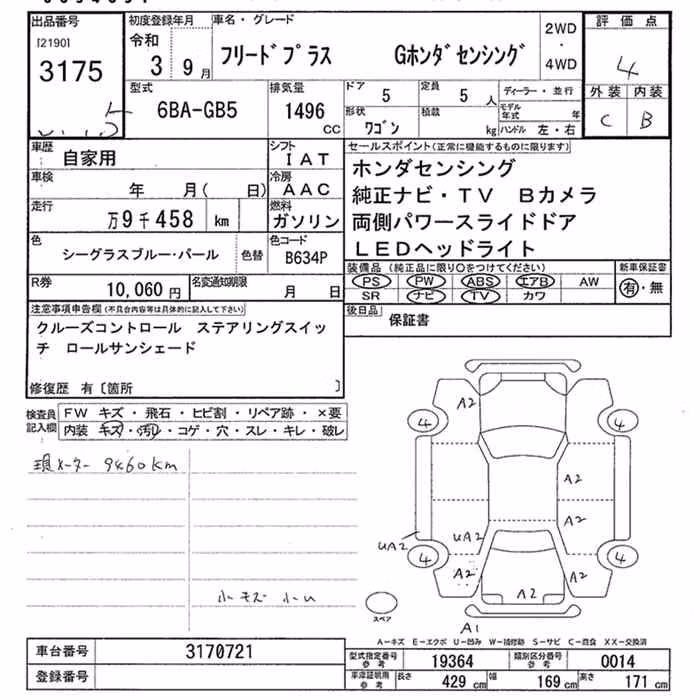 出品番号 初度登録年月 車名・グレード 評価点
[2190] 令和 2WD
3175 3 9月 フリードプラス Gホンダセンシング ・ 4
4WD
型式 排気量 ドア 定員 ディーラー・並行 外装 内装
6BA-GB5 1496 CC 5 5人 モデル年式 年 C B
形状 積載
ワゴン kg ハンドル 左・右
車歴 自家用 シフト IAT セールスポイント(正常に機能するものに限ります)
車検 年 月( 日) 冷房 AAC ホンダセンシング
走行 万9千458 km 燃料 ガソリン 純正ナビ・TV Bカメラ
両側パワースライドドア
色 シーグラスブルー・パール 色替 色コード B634P LEDヘッドライト
R券 10,060円 名変通知期限 月 日 装備品(純正品に限り○をつけてください) 新車保証書
PS PW ABS エアB AW 有・無
SR ナビ TV カワ
注意事項申告欄(不具合内容等は具体的に記入して下さい) 後日品 保証書
クルーズコントロール ステアリングスイッ
チ ロールサンシェード
修復歴 有〔箇所 〕
検査員記入欄 FW キズ・飛石・ヒビ割・リペア跡・×要
内装 キズ・汚レ・コゲ・穴・スレ・キレ・破レ
現メーター 9460km
A2
4 4
A2
A2
UA2 UA2
4 4
A2 A2
A2
小キズ 小凹
スペア
A1
A-キズ E-エクボ U-凹み W-補修跡 S-サビ C-腐食 XX-交換済
車台番号 3170721
型式指定番号 参考 19364 類別区分番号 参考 0014
登録番号
車庫証明用 参考 長さ 429 cm 幅 169 cm 高さ 171 cm